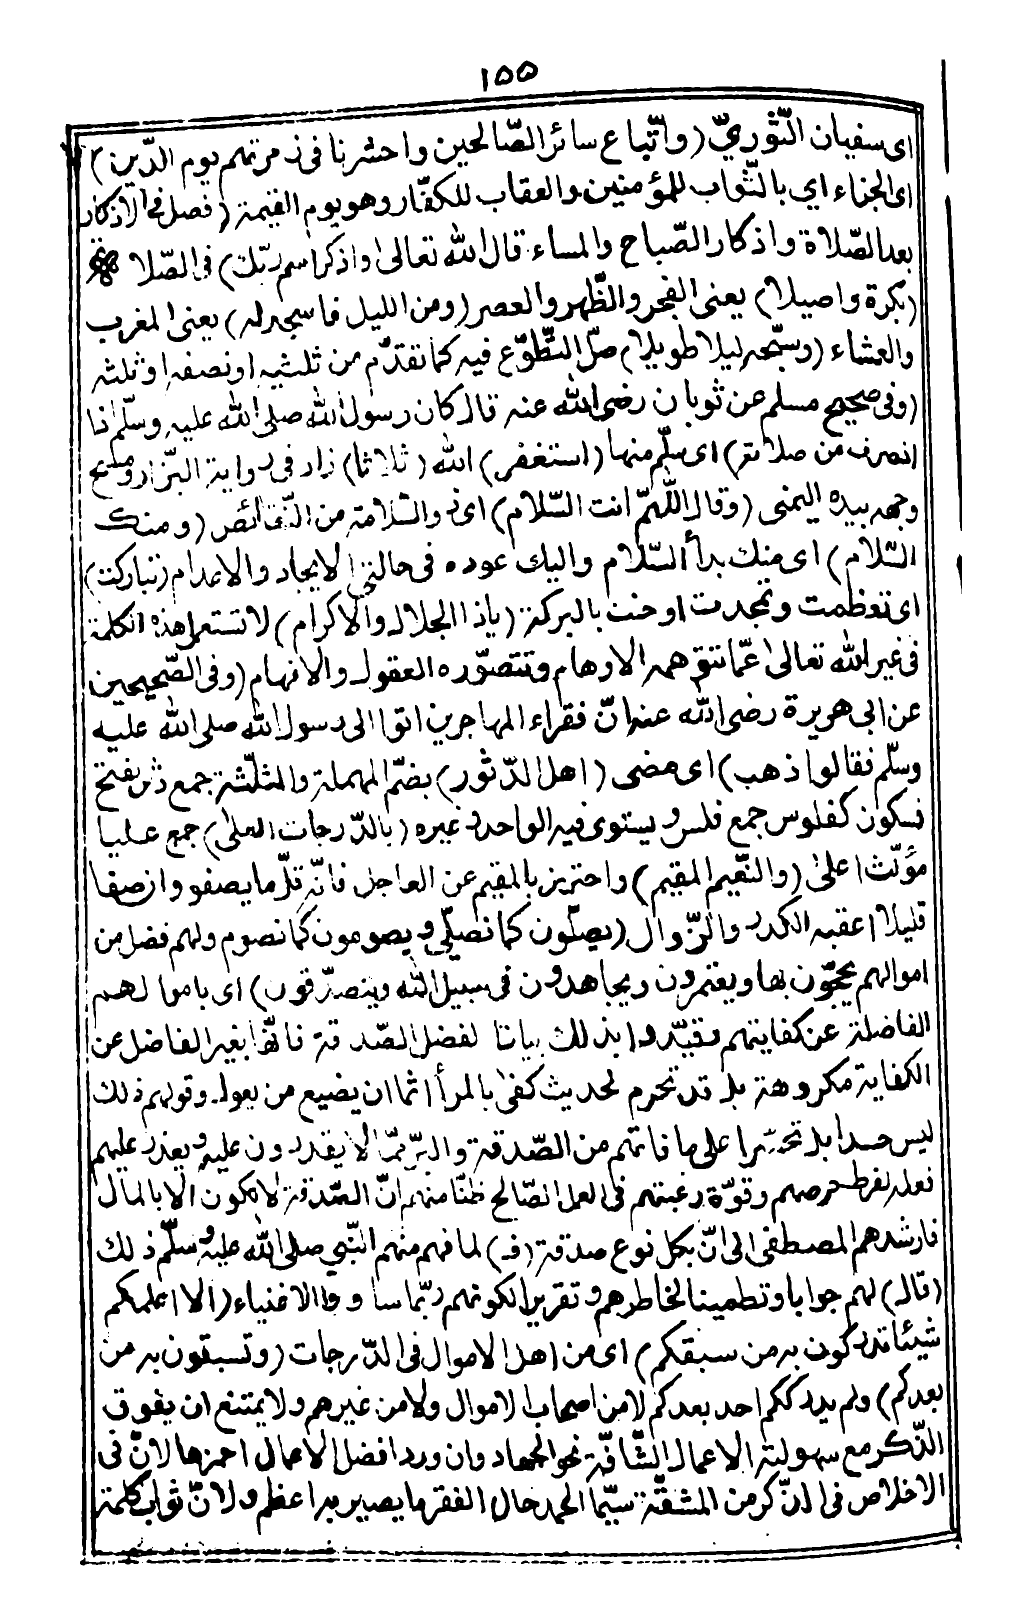 ١٥٥
اى سفيان الثّوريّ (واتّباع سائر الصّالحين واحشرنا فى زمرتهم يوم الدّين)
اى الجزاء اي بالثّواب للمؤمنين والعقاب للكفّار وهو يوم القيمة (فصل فى الاذكار
بعد الصّلاة واذكار الصّباح والمساء قال الله تعالى واذكر اسم ربّك) فى الصّلاة
(بكرة واصيلا) يعنى الفجر والظّهر والعصر (ومن الليل فاسجد له) يعنى المغرب
والعشاء (وسبّحه ليلا طويلا) صلّ التّطوّع فيه كما تقدّم من ثلثيه او نصفه او ثلثه
(وفى صحيح مسلم عن ثوبان رضى الله عنه قال كان رسول الله صلى الله عليه وسلّم اذا
انصرف من صلاته) اى سلّم منها (استغفر) الله (ثلاثا) زاد فى رواية البزّار ومسح
وجهه بيده اليمنى (وقال اللّهمّ انت السّلام) اى ذو السّلامة من النّقائص (ومنك
السّلام) اى منك بدأ السّلام واليك عوده فى حالتي الايجاد والاعدام (تباركت)
اى تعظمت وتمجدت او حنت بالبركة (ياذا الجلال والاكرام) لا تستعمل هذه الكلمة
فى غير الله تعالى عمّا تتوهمه الاوهام وتتصوّره العقول والافهام (وفى الصّحيحين
عن ابى هريرة رضى الله عنه انّ فقراء المهاجرين اتوا الى رسول الله صلى الله عليه
وسلّم فقالوا ذهب) اى مضى (اهل الدّثور) بضمّ المهملة والمثلّثة جمع دثر بفتح
فسكون كفلوس جمع فلس ويستوى فيه الواحد وغيره (بالدّرجات العلى) جمع عليا
مؤنّث اعلى (والنّعيم المقيم) واحترز بالمقيم عن العاجل فانّه قلّ ما يصفو وان صفا
قليلا اعقبه الكدر والزّوال (يصلّون كما نصلّي ويصومون كما نصوم ولهم فضل من
اموالهم يحجّون بها ويعتمرون ويجاهدون فى سبيل الله ويتصدّقون) اى باموالهم
الفاضلة عن كفايتهم وقيّدوا بذلك بيانا لفضل الصّدقة فانّها بغير الفاضل عن
الكفاية مكروهة بل قد تحرم لحديث كفى بالمرأ اثما ان يضيع من يعول وقولهم ذلك
ليس حسدا بل تحسّرا على ما فاتهم من الصّدقة والبرّ ممّا لا يقدرون عليه ويعذر عليهم
فعله لفرط حرصهم وقوّة رغبتهم فى العمل الصّالح ظنّا منهم انّ الصّدقة لا تكون الا بالمال
فارشدهم المصطفى الى انّ بكل نوع صدقة (فـ) لما فهم منهم النّبي صلى الله عليه وسلّم ذلك
(قال) لهم جوابا وتطمينا لخاطرهم وتقريرا لكونهم ربّما ساووا الاغنياء (الا اعلمكم
شيئا تدركون به من سبقكم) اى من اهل الاموال فى الدّرجات (وتسبقون به من
بعدكم) ولم يدرككم احد بعدكم لا من اصحاب الاموال ولا من غيرهم ولا يمتنع ان يفوق
الذّكر مع سهولته الاعمال الشّاقّة نحو الجهاد وان ورد افضل الاعمال احمزها لانّ فى
الاخلاص فى الذّكر من المشقّة سيّما الحمد حال الفقر ما يصير به اعظم ولانّ ثواب كلمة